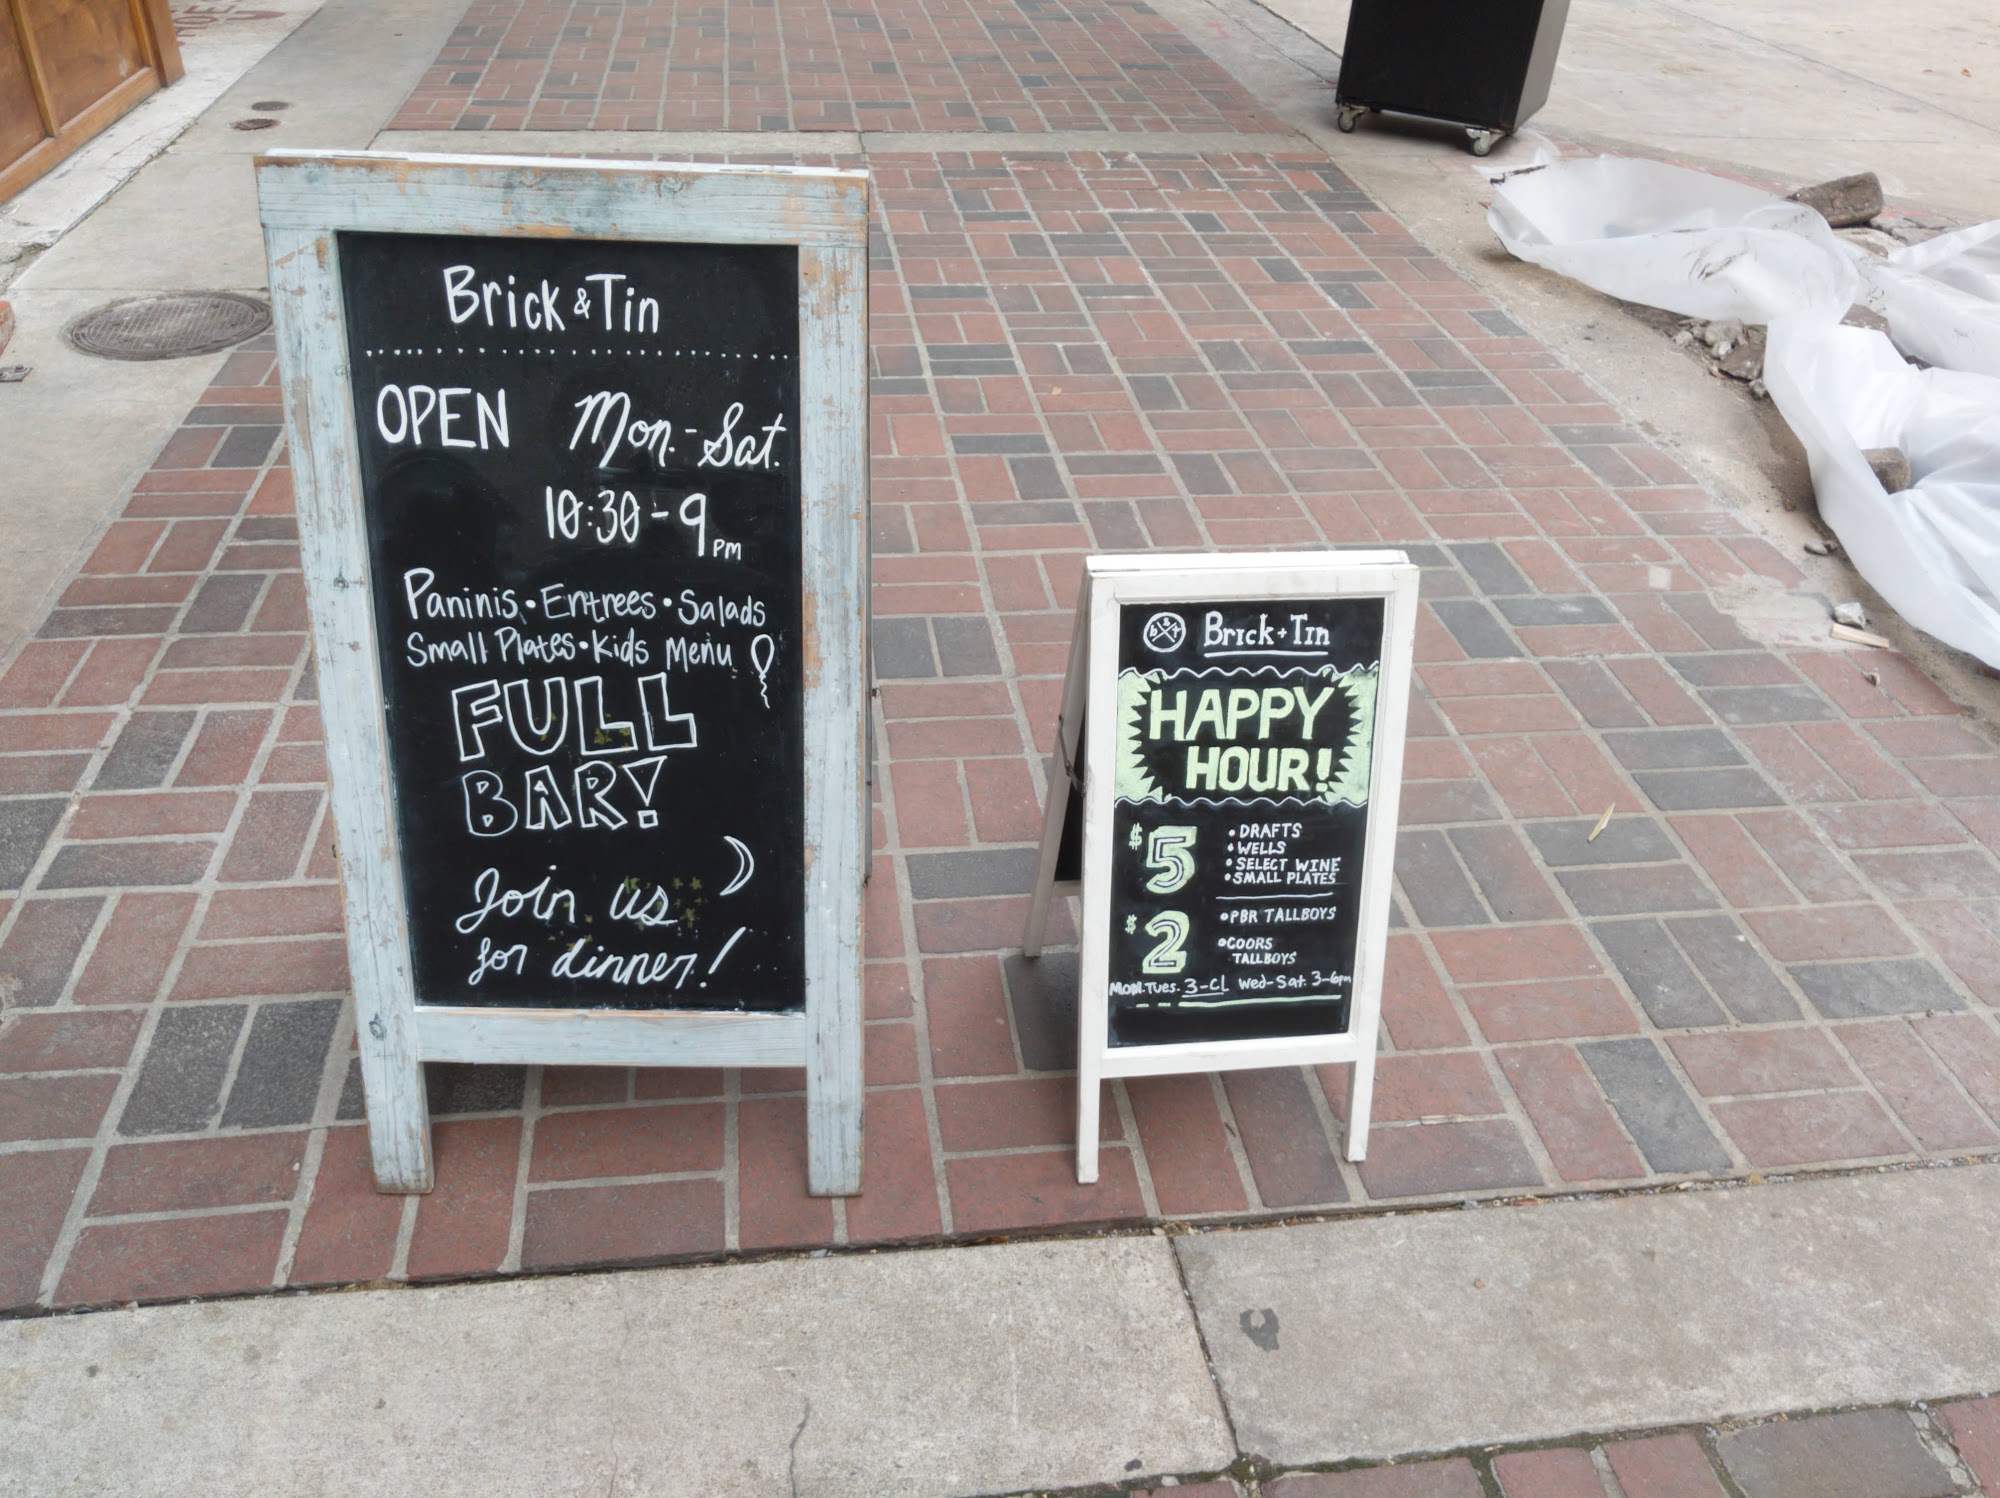 Brick & Tin
OPEN Mon.-Sat.
10:30-9 PM
Paninis • Entrees • Salads
Small Plates • Kids Menu
FULL
BAR!
Join us
for dinner!
Brick + Tin
HAPPY
HOUR!
$5
• DRAFTS
• WELLS
• SELECT WINE
• SMALL PLATES
$2
• PBR TALLBOYS
• COORS
TALLBOYS
Mon.Tues. 3-CL Wed-Sat. 3-6pm